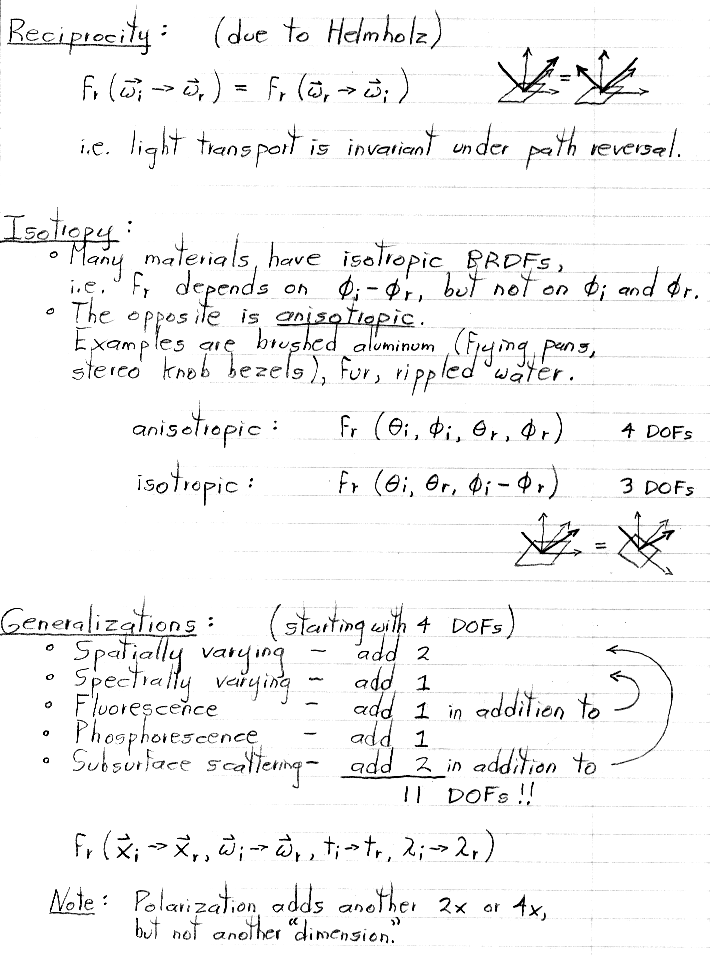 Reciprocity: (due to Helmholz)
fr (ω⃗i → ω⃗r) = fr (ω⃗r → ω⃗i)
=
i.e. light transport is invariant under path reversal.
Isotropy:
° Many materials have isotropic BRDFs,
i.e. fr depends on ϕi-ϕr, but not on ϕi and ϕr.
° The opposite is anisotropic.
Examples are brushed aluminum (frying pans,
stereo knob bezels), fur, rippled water.
anisotropic: fr (θi, ϕi, θr, ϕr) 4 DOFs
isotropic: fr (θi, θr, ϕi-ϕr) 3 DOFs
=
Generalizations: (starting with 4 DOFs)
° Spatially varying - add 2
° Spectrally varying - add 1
° Fluorescence - add 1 in addition to
° Phosphorescence - add 1
° Subsurface scattering - add 2 in addition to
11 DOFs!!
fr (x⃗i → x⃗r, ω⃗i → ω⃗r, ti → tr, λi → λr)
Note: Polarization adds another 2x or 4x,
but not another "dimension."